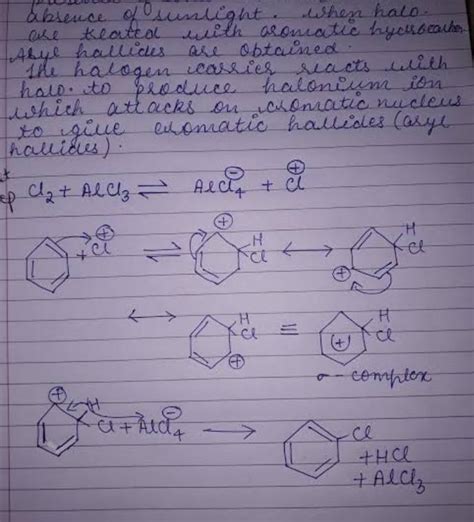 absence of sunlight. when halo.
are treated with aromatic hydrocarbon
Aryl hallides are obtained.
The halogen carrier reacts with
halo. to produce halonium ion
which attacks on aromatic nucleus
to give aromatic hallides (aryl
hallides).
Cl2 + AlCl3 ⇌ AlCl4⊖ + Cl⊕
+ Cl⊕ ⇌ ⊕ H Cl ↔ ⊕ H Cl
↔ H Cl ⊕ ≡ (+) H Cl
σ-complex
⊕ H Cl + AlCl4⊖ → Cl
+ HCl
+ AlCl3